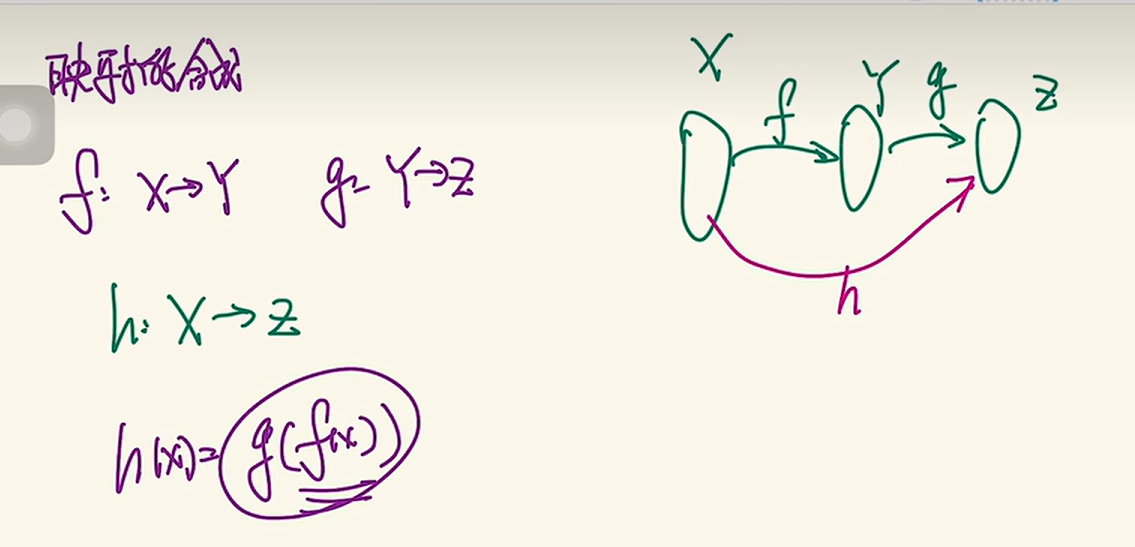 映射的合成
f: X→Y g: Y→Z
h: X→Z
h(x)=g(f(x))
X f Y g Z
h